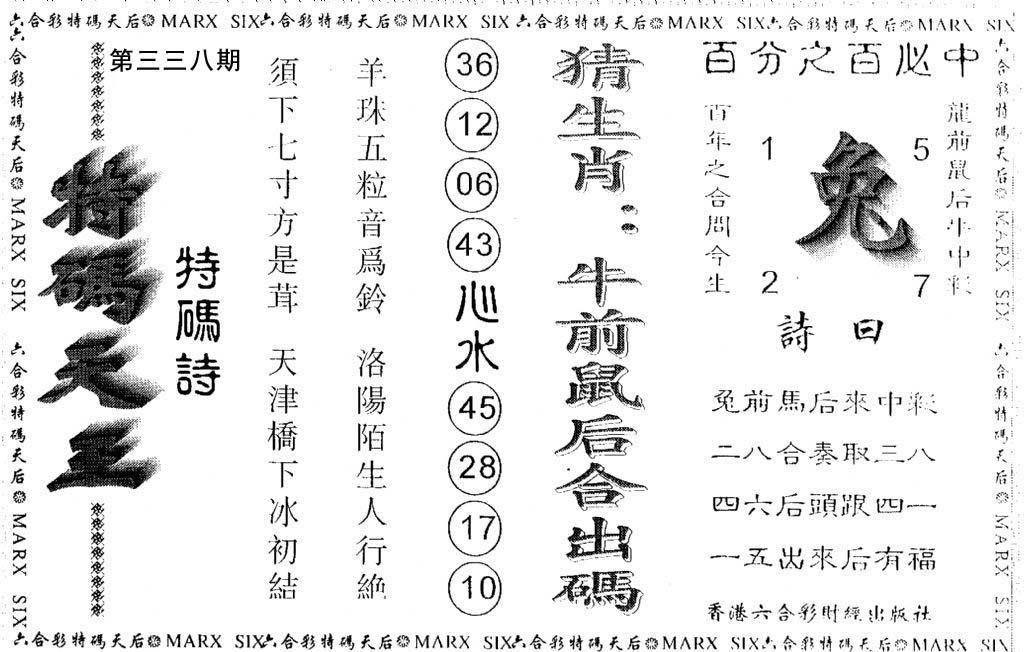 六合彩特碼天后❁MARX SIX六合彩特碼天后❁MARX SIX六合彩特碼天后❁MARX SIX六合彩特碼天后❁MARX SIX
六合彩特碼天后❁MARX SIX 六合彩特碼天后❁MARX SIX
第三三八期
特碼天王
特碼詩
須下七寸方是茸 天津橋下冰初結
羊珠五粒音爲鈴 洛陽陌生人行絶
36
12
06
43
心水
45
28
17
10
猜生肖：牛前鼠后合出碼
百分之百必中
百年之合問今生
1
5
兔
2
7
龍前鼠后牛中彩
詩曰
兔前馬后來中彩
二八合奏取三八
四六后頭跟四一
一五出來后有福
香港六合彩財經出版社
六合彩特碼天后❁MARX SIX 六合彩特碼天后❁MARX SIX
六合彩特碼天后❁MARX SIX六合彩特碼天后❁MARX SIX六合彩特碼天后❁MARX SIX六合彩特碼天后❁MARX SIX